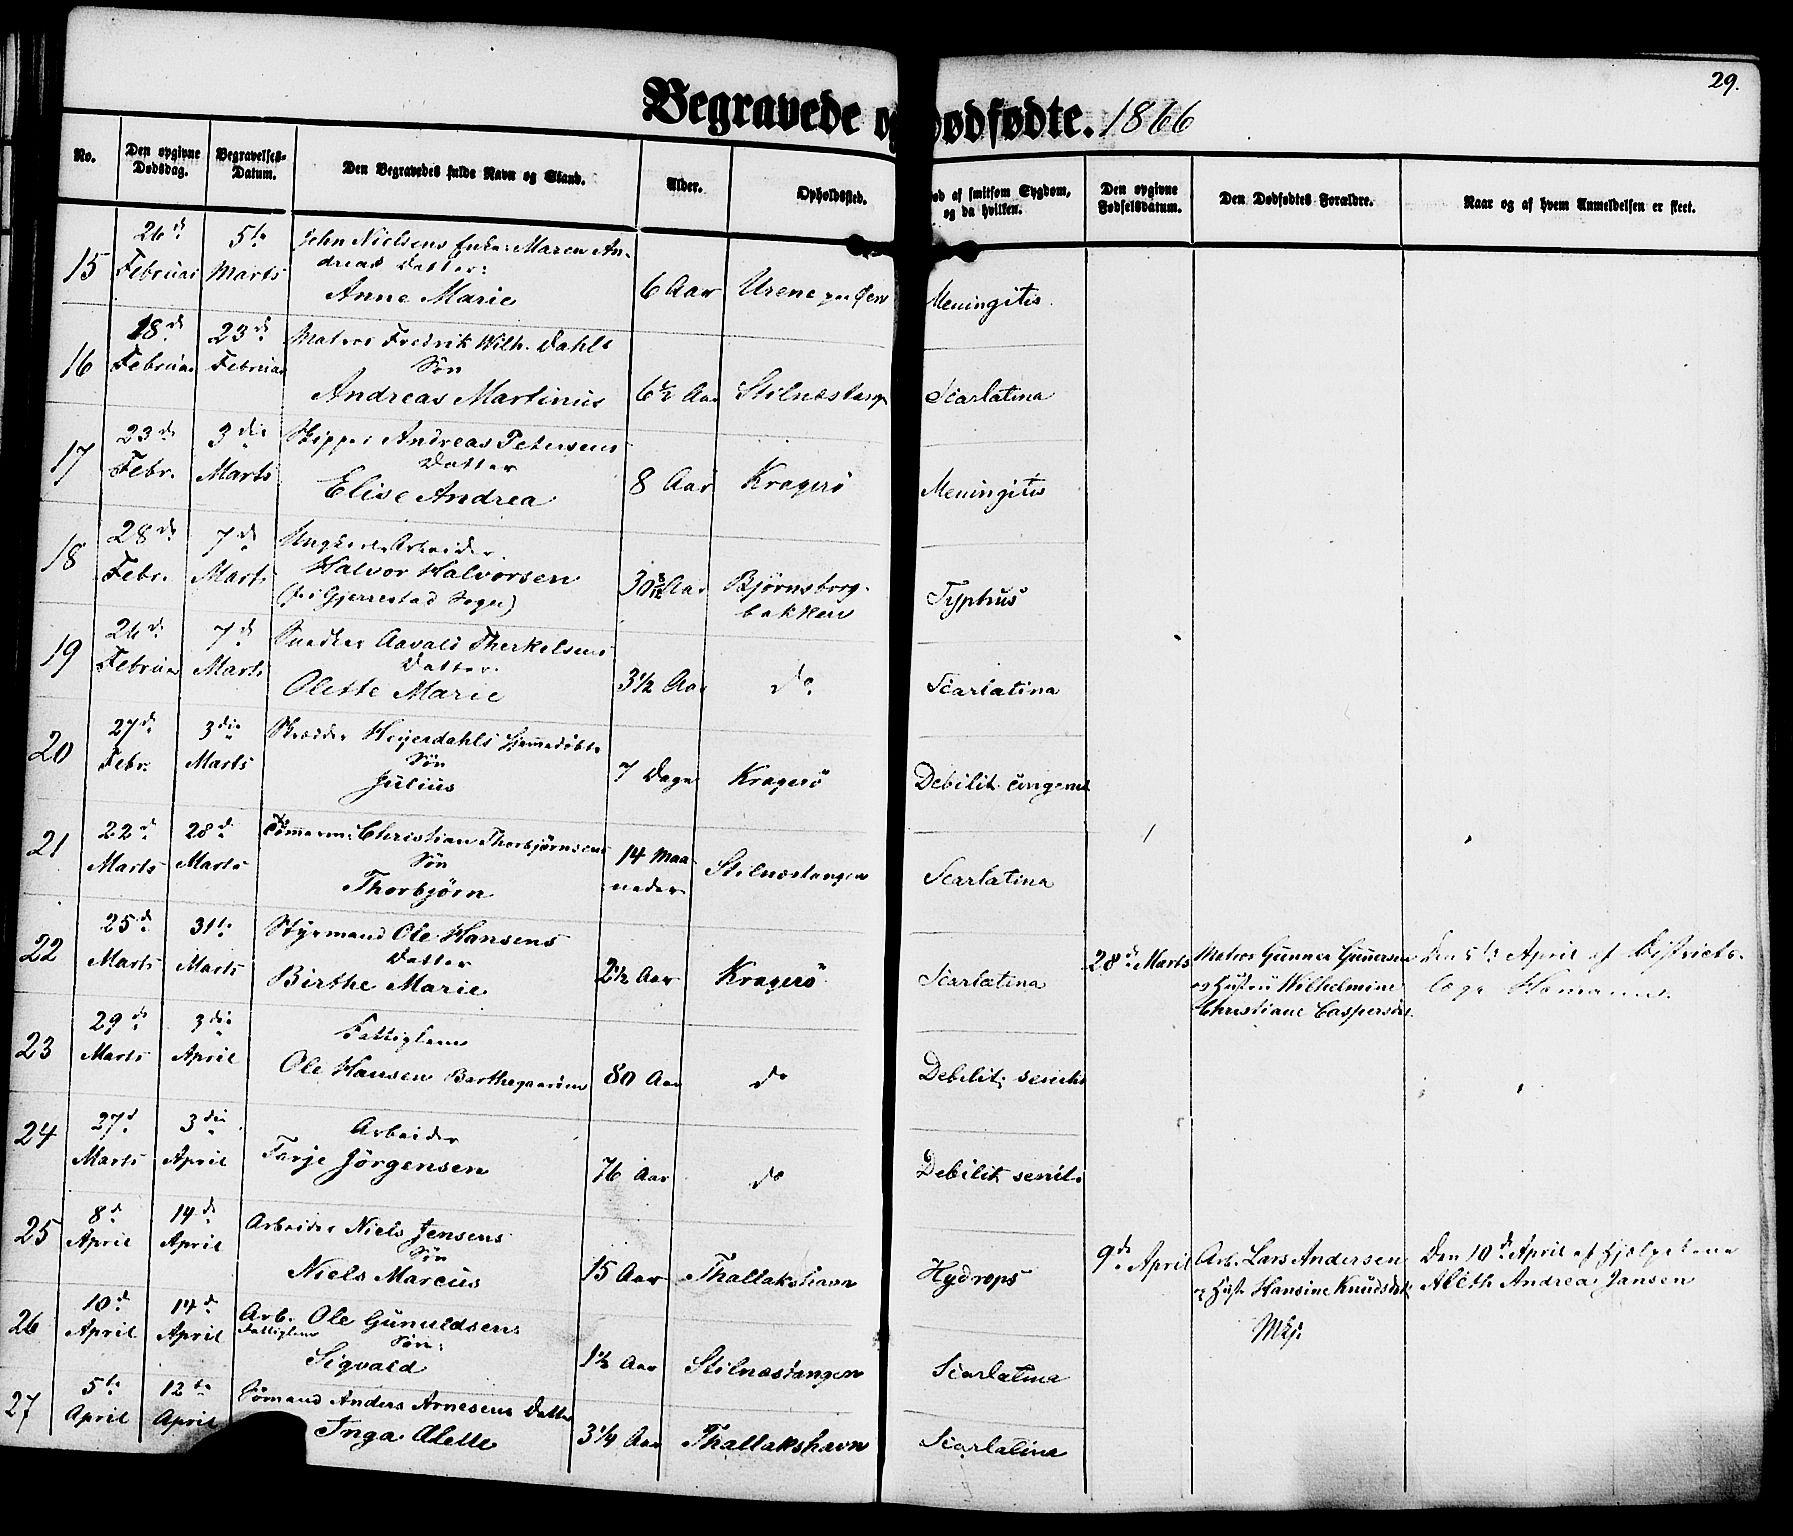 29.
Begravede og Dødfødte. 1866
No.
Den opgivne Dødsdag.
Begravelses-Datum.
Den Begravedes fulde Navn og Stand.
Alder.
Opholdssted.
af smitsom Sygdom, og da hvilken.
Den opgivne Fødselsdatum.
Den Dødfødtes Forældre.
Naar og af hvem Anmeldelsen er skeet.
15 26de Februar 5te Marts John Nielsens Enke: Maren Andreas Datter: Anne Marie 6 Aar Urene paa Øen Meningitis.
16 18de Februar 23de Februar Matros Fredrik Wilh. Dahls Søn Andreas Martinus 6½ Aar Stilnæstang Scarlatina
17 23de Febr. 3die Marts Skipper Andreas Petersens Datter Elise Andrea 8 Aar Kragerö Meningitis
18 28de Febr. 7de Marts Ungkarl Arbeider Halvor Halvorsen (fra Gjerrestad Sogn) 30 8/12 Aar Björnsborgbakken Typhus
19 26de Februar 7de Marts Snedker Aavald Therkelsens Datter Olette Marie 3½ Aar do Scarlatina
20 27de Febr. 3die Marts Skrædder Heyerdahls hjemmedöbte Søn Julius 7 Dage Kragerö Debilit. congenit
21 22de Marts 28de Marts Tömmerm: Christian Thorbjørnsens Søn Thorbjörn 14 Maaneder Stilnæstangen Scarlatina
22 25de Marts 31te Marts Styrmand Ole Hansens Datter Birthe Marie 2½ Aar Kragerö Scarlatina
28de Marts Matros Gunner Gunnersen og Hustru Wilhelmine Christiane Caspersdt. Den 5te April af Districtslæge Homann.
23 29de Marts 3die April Fattiglem Ole Hansen Barthegaarden 80 Aar do Debilit: senilis
24 27de Marts 3die April Arbeider Tarje Jörgensen 76 Aar do Debilit senilis
25 8de April 14de April Arbeider Niels Jensens Søn Niels Marcus 15 Aar Thallakshavn Hydrops
9de April Arb. Lars Andersen og Hustr. Hansine Knudsdt. Mkj. Den 10de April af Hjelpekone Aleth Andrea Jansen
26 10de April 14de April Arb. Fattiglem Ole Gunuldsens Søn: Sigvald 1½ Aar Stilnæstangen Scarlatina
27 5te April 12te April Sömand Anders Arnesens Datter Inga Alette 3¼ Aar Thallakshavn Scarlatina